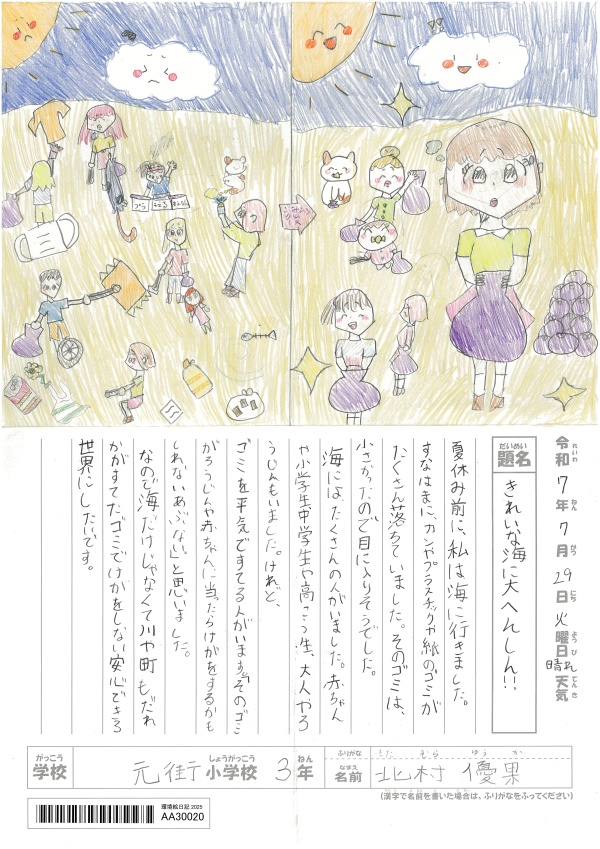 ごみひろい
つら
もえる
もえない
れいわ ねん がつ にち ようび てんき
令和7年7月29日火曜日晴れ天気
だいめい
題名
きれいな海に大へんしん!!
夏休み前に、私は海に行きました。
すなはまにカンやプラスチックや紙のゴミが
たくさん落ちていました。そのゴミは、
小さかったので目に入りそうでした。
海には、たくさんの人がいました。赤ちゃん
や小学生中学生や高こう生、大人やろ
うじんもいました。けれど、
ゴミを平気ですてる人がいます。『そのゴミ
がろうじんや赤ちゃんに当たらけがをするかも
しれないあぶない』と思いました。
なので海だけじゃなくて川や町もだれ
かがすてたゴミでけがをしない安心できる
世界にしたいです。
がっこう しょうがっこう ねん
学校 元街小学校 3年
ふりがな きた むら ゆう か
なまえ
名前 北村 優果
(漢字で名前を書いた場合は、ふりがなをふってください)
環境絵日記 2025
AA30020